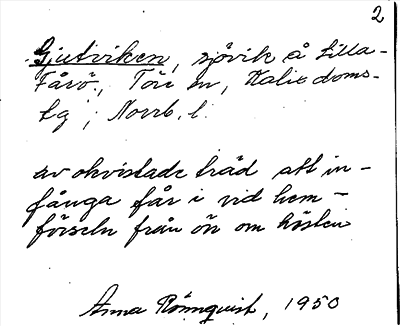 2
Gjutviken, sjövik å Lilla-
Fårö, Töre sn, Kalix doms-
lg, Norrb. l.
av okvistade träd att in-
fånga får i vid hem-
förseln från ön om hösten
Anna Rönnquist, 1950